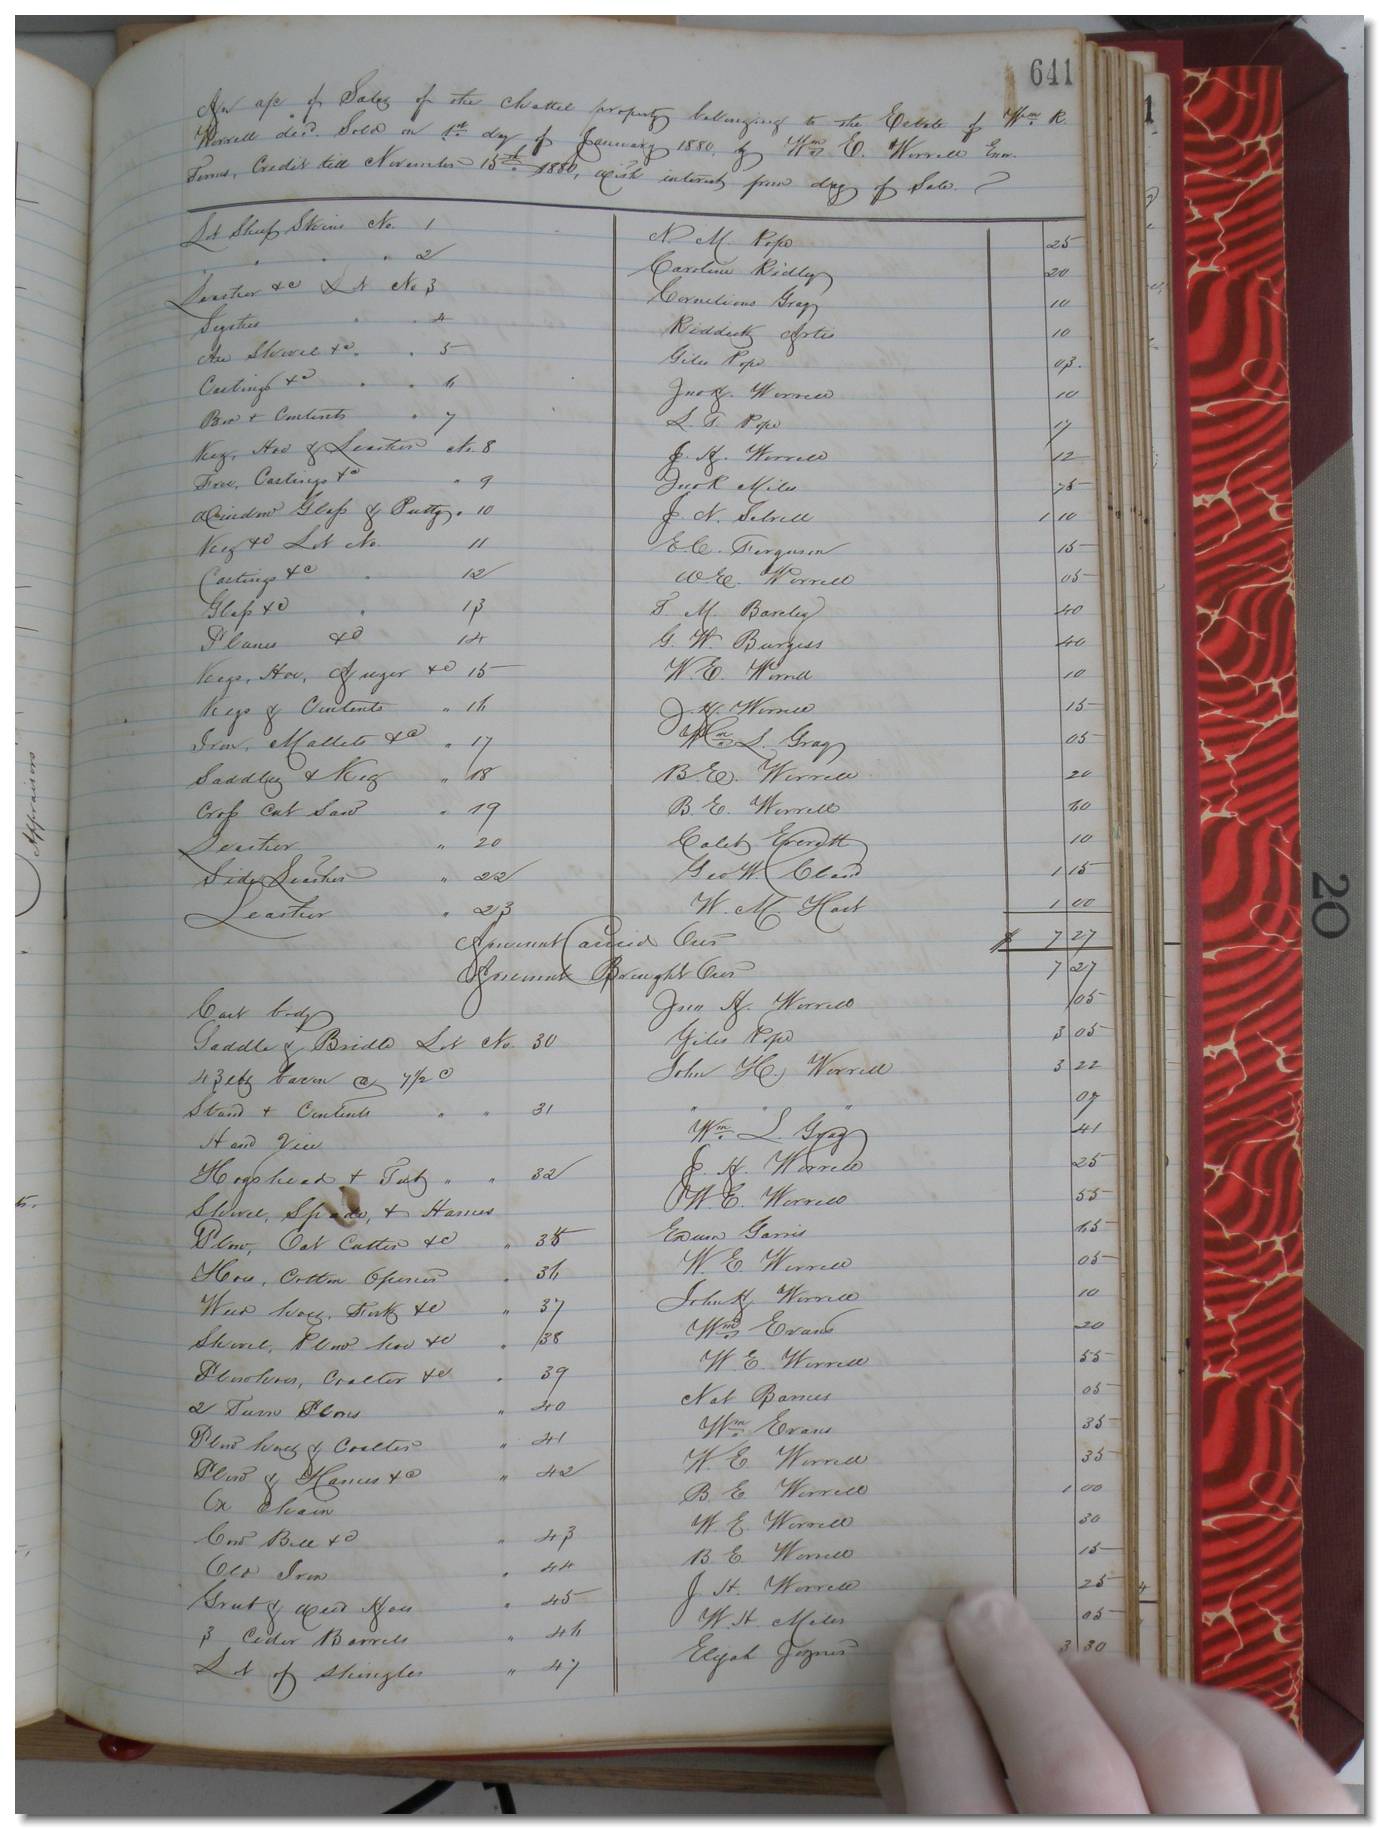 641
An a/c of Sales of the chattel property belonging to the Estate of Wm R.
Worrell decd. Sold on 1st day of January 1880, by Wm E. Worrell Exor.
Terms, Credit till November 15th 1880, with interest from day of Sale.
Lot Sheep Skins No. 1 N. M. Pope 25
" " " " 2 Caroline Ridley 20
Leather &c Lot No 3 Cornelious Gray 10
Scythes " " 4 Riddick Artis 10
Axe Shovel &c " " 5 Giles Pope 03
Castings &c " " 6 Jno H. Worrell 10
Box & Contents " 7 L. T. Pope 17
Keg, Hoe & Leather No. 8 J. H. Worrell 12
Froe, Castings &c " 9 Jno R Miles 75
Window Glass & Putty " 10 J. N. Sebrell 1 10
Keg &c Lot No. 11 E. C. Ferguson 15
Castings &c " 12 W. E. Worrell 05
Glass &c " 13 T. M. Barclay 40
Planes &c 14 G. W. Burgess 40
Kegs, Hoe, Auger &c 15 W. E. Worrell 10
Kegs & Contents " 16 J. H. Worrell 15
Iron, Mallets &c " 17 Wm L. Gray 05
Saddles & Keg " 18 B. E. Worrell 20
Cross Cut Saw " 19 B. E. Worrell 60
Leather " 20 Caleb Everett 10
Side Leather " 22 Geo W. Claud 1 15
Leather " 23 W. M. Hart 1 00
Amount Carried Over $ 7 27
Amount Brought Over 7 27
Cart body Jno H. Worrell 05
Saddle & Bridle Lot No. 30 Giles Pope 3 05
43 lbs bacon @ 7 1/2 c John H. Worrell 3 22
Stand & Contents " " 31 " " " 07
Hand Vice Wm L. Gray 41
Hogshead & Tub " " 32 J. H. Worrell 25
Shovel, Spade, & Hames W. E. Worrell 55
Plow, Oat Cutter &c " 35 Exum Garris 65
Hoes, Cotton Opener " 36 W. E. Worrell 05
Weed hoes, Fork &c " 37 John H. Worrell 10
Shovel, Plow hoe &c " 38 Wm Evans 20
Plowhoes, Coalter &c " 39 W E Worrell 55
2 Turn Plows " 40 Nat Barnes 05
Plow hoes & Coalter " 41 Wm Evans 35
Plow & Hames &c " 42 W. E. Worrell 35
Ox Chain B E Worrell 1 00
Cow Bell &c " 43 W. E. Worrell 30
Old Iron " 44 B. E. Worrell 15
Grub & Weed Hoes " 45 J. H. Worrell 25
3 Cider Barrels " 46 W. H. Miles 05
Lot of Shingles " 47 Elijah Joyner 3 30
Appraisors
20